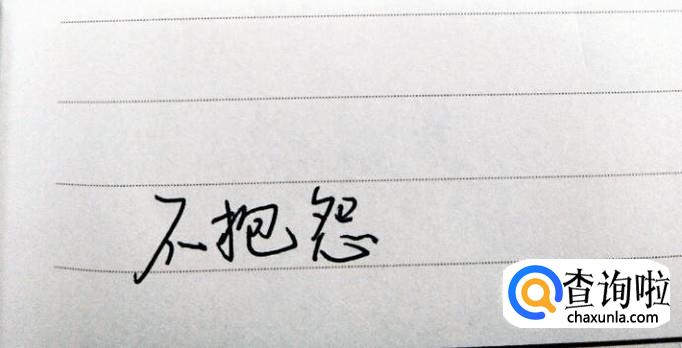 不抱怨
查询啦
chaxunla.com